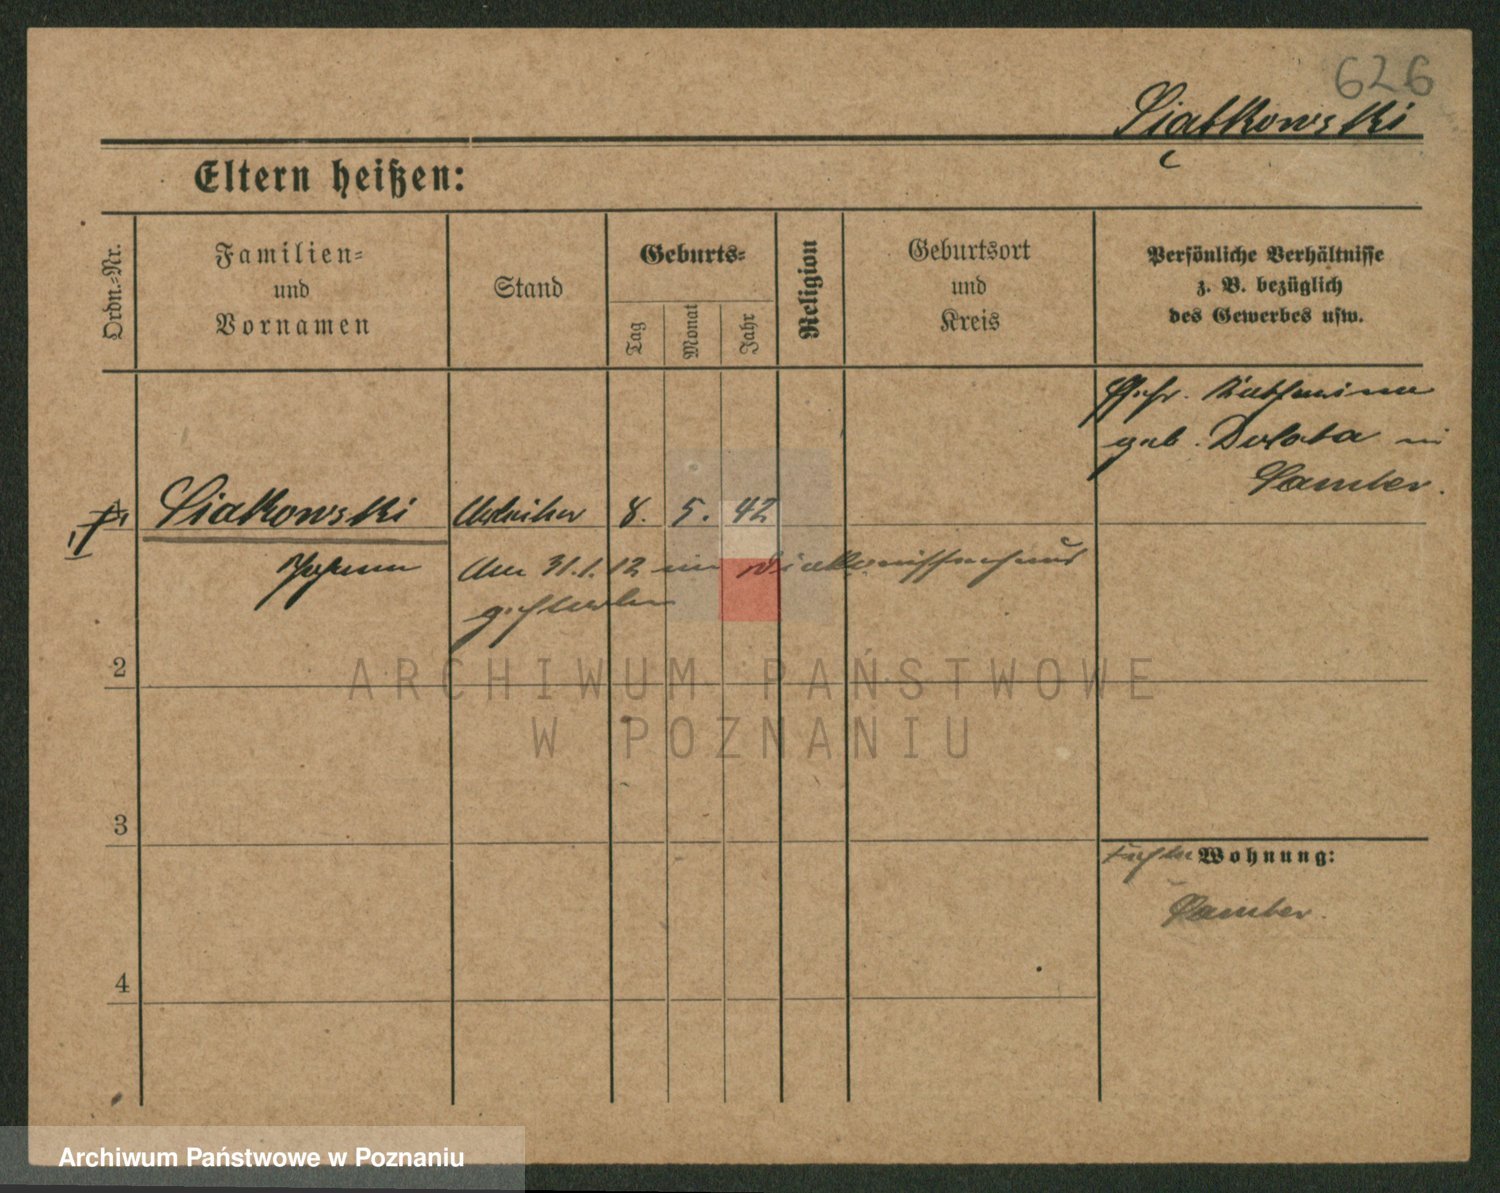 626
Siatkowski
Eltern heißen:
Ordn.-Nr.
Familien-
und
Vornamen
Stand
Geburts-
Tag
Monat
Jahr
Religion
Geburtsort
und
Kreis
Persönliche Verhältnisse
z. B. bezüglich
des Gewerbes usw.
Katharina
geb.
Samter.
1
Siatkowski
Arbeiter
8. 5. 42
Johann
Am 31.1.12 im Diakonissenhaus
gestorben
2
3
4
Wohnung:
Samter.
ARCHIWUM PAŃSTWOWE
W POZNANIU
Archiwum Państwowe w Poznaniu